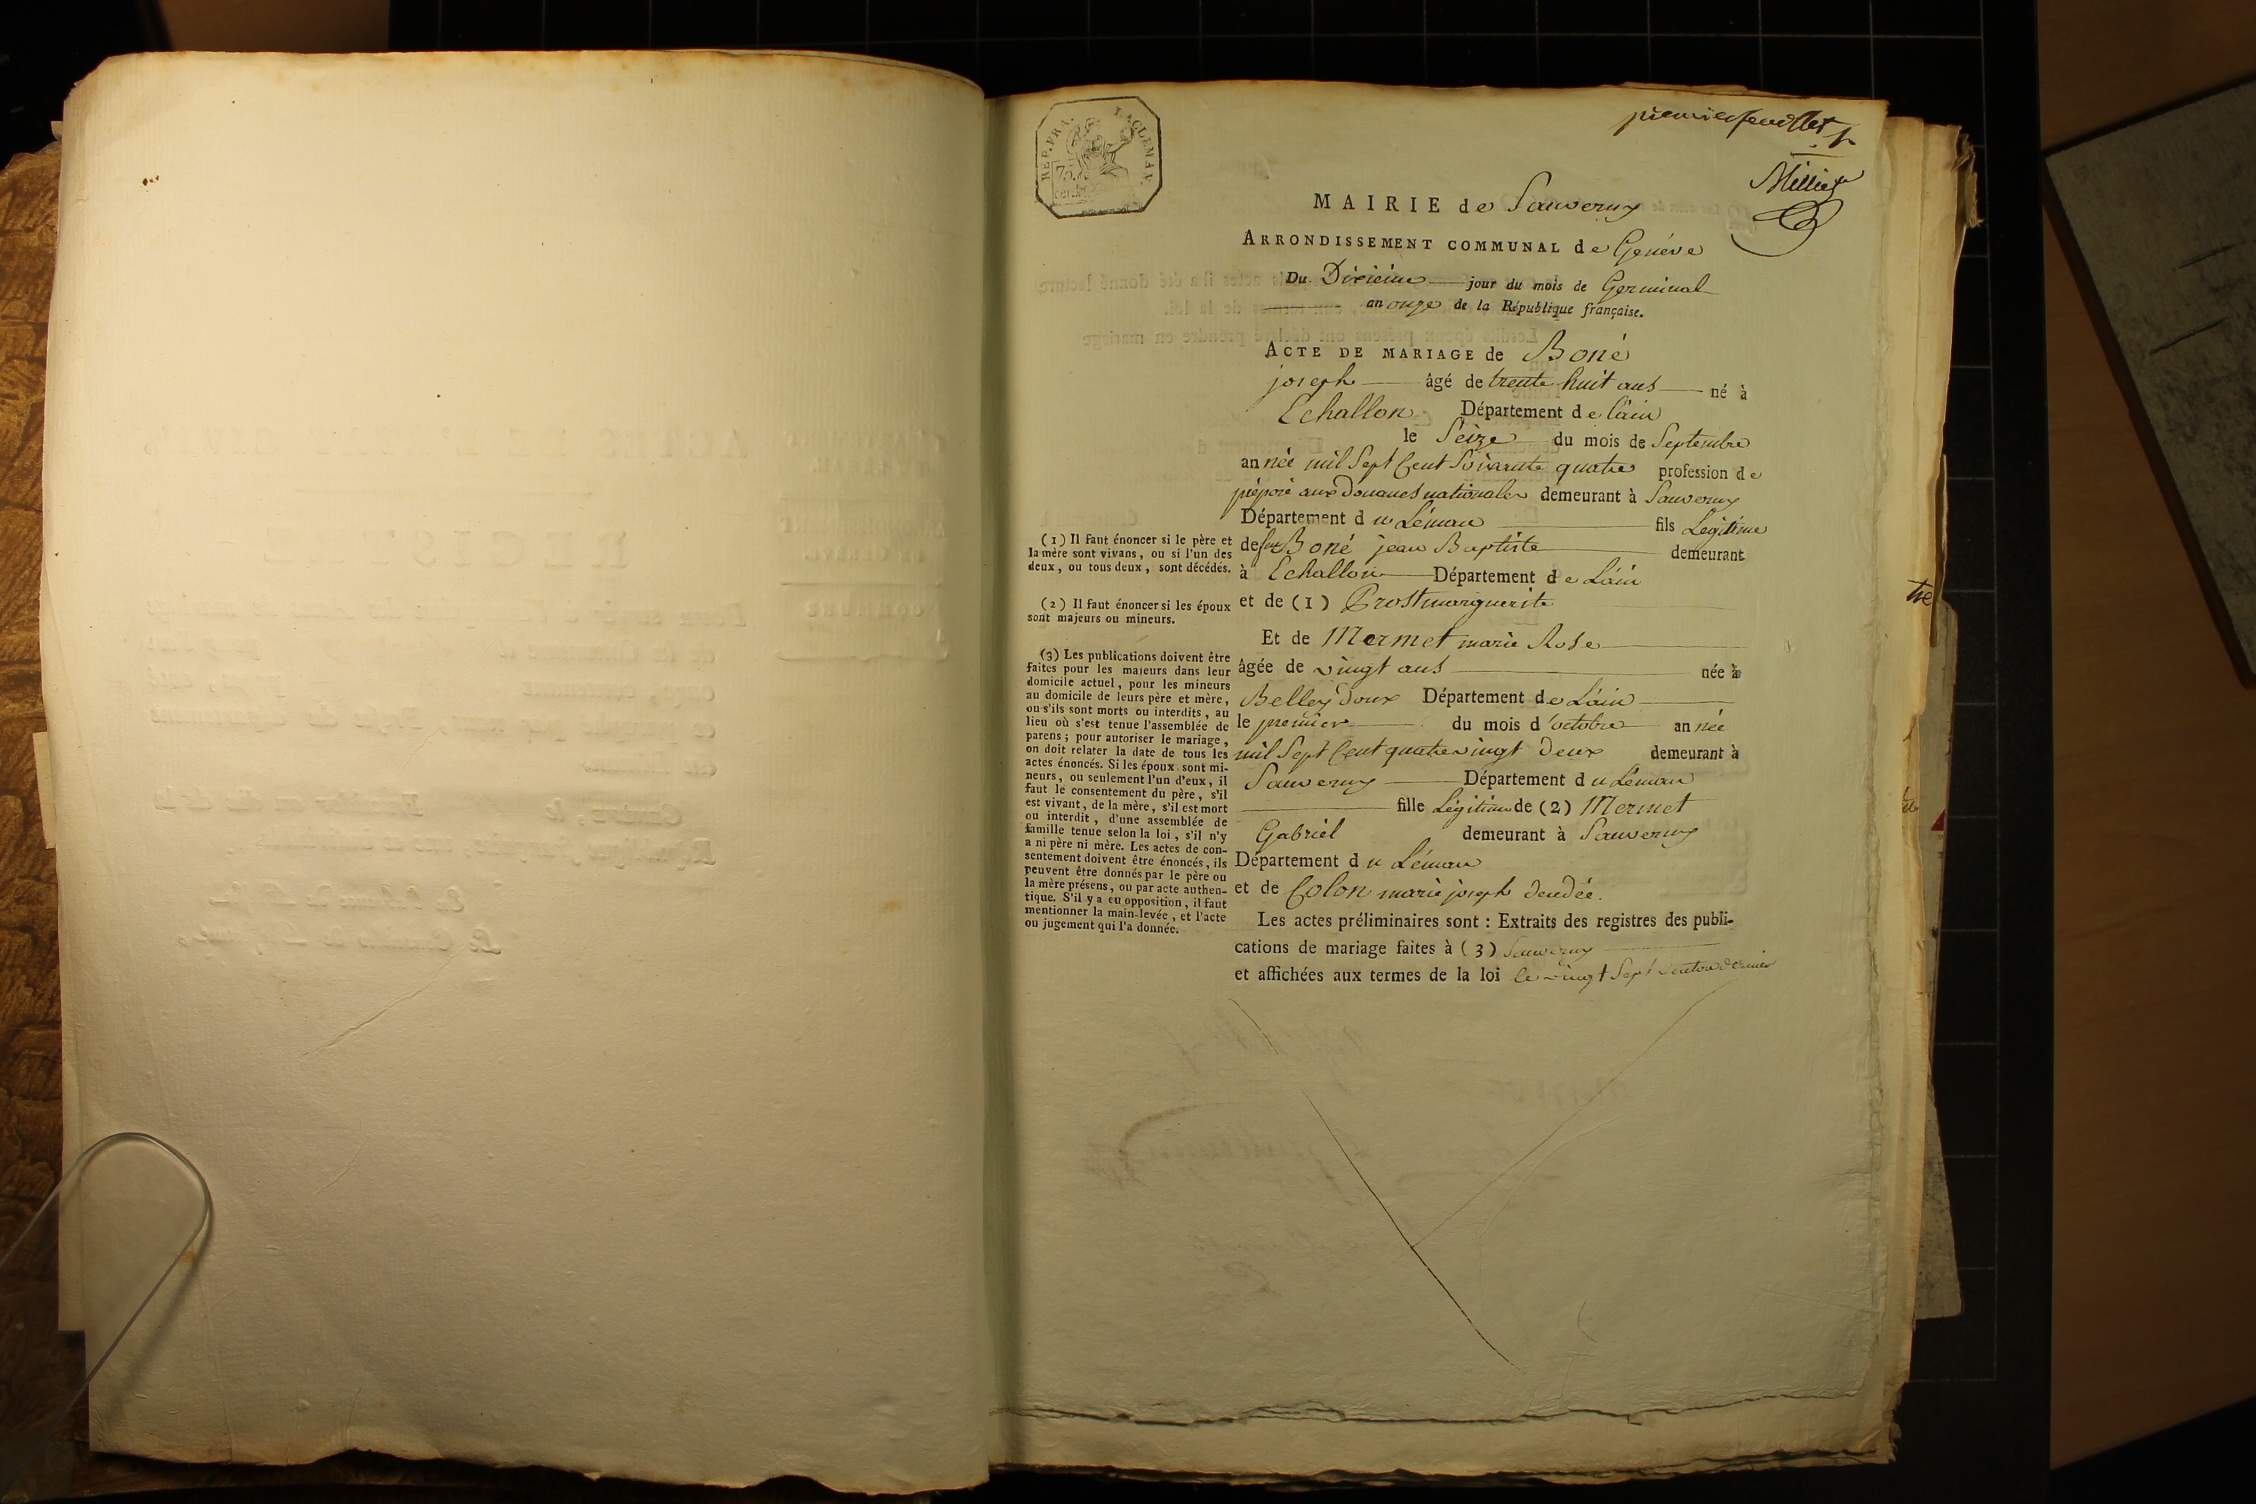 premier feuillet
Millict
REP. FRA.
75.
MAIRIE de Sauverny
ARRONDISSEMENT COMMUNAL de Genéve
Du Dixieme jour du mois de Germinal
an onze de la République française.
ACTE DE MARIAGE de Boné
joseph âgé de trente huit ans né à
Echallon Département de Lain
le Seize du mois de Septembre
année mil Sept Cent Soixante quatre profession de
préposé aux Douanes nationales demeurant à Sauverny
Département du Léman fils Legitime
de feu Boné jean Baptiste demeurant
à Echallon Département de Lain
et de (1) Prost marguerite
Et de Mermet marie Rose
âgée de vingt ans née à
Belley Doux Département de Lain
le premier du mois d'octobre année
mil Sept Cent quatre vingt Deux demeurant à
Sauverny Département du Léman
fille Légitime de (2) Mermet
Gabriel demeurant à Sauverny
Département du Léman
et de Colon marie joseph
Les actes préliminaires sont : Extraits des registres des publi-
cations de mariage faites à (3) Sauverny
et affichées aux termes de la loi le vingt Sept ventose dernier
(1) Il faut énoncer si le père et
la mère sont vivans, ou si l'un des
deux, ou tous deux, sont décédés.
(2) Il faut énoncer si les époux
sont majeurs ou mineurs.
(3) Les publications doivent être
faites pour les majeurs dans leur
domicile actuel, pour les mineurs
au domicile de leurs père et mère,
ou s'ils sont morts ou interdits, au
lieu où s'est tenue l'assemblée de
parens ; pour autoriser le mariage,
on doit relater la date de tous les
actes énoncés. Si les époux sont mi-
neurs, ou seulement l'un d'eux, il
faut le consentement du père, s'il
est vivant, de la mère, s'il est mort
ou interdit, d'une assemblée de
famille tenue selon la loi, s'il n'y
a ni père ni mère. Les actes de con-
sentement doivent être énoncés, ils
peuvent être donnés par le père ou
la mère présens, ou par acte authen-
tique. S'il y a eu opposition, il faut
mentionner la main-levée, et l'acte
ou jugement qui l'a donnée.